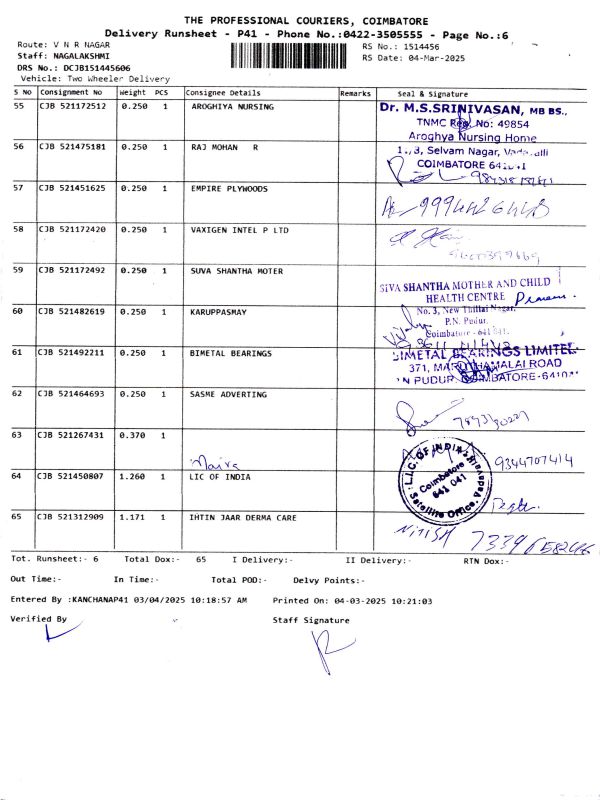 THE PROFESSIONAL COURIERS, COIMBATORE
Delivery Runsheet - P41 - Phone No.:0422-3505555 - Page No.:6
Route: V N R NAGAR
RS No.: 1514456
Staff: NAGALAKSHMI
RS Date: 04-Mar-2025
DRS No.: DCJB151445606
Vehicle: Two Wheeler Delivery
S No Consignment No Weight PCS Consignee Details Remarks Seal & Signature
55 CJB 521172512 0.250 1 AROGHIYA NURSING
Dr. M.S.SRINIVASAN, MB BS.,
TNMC Reg. No: 49854
Aroghya Nursing Home
56 CJB 521475181 0.250 1 RAJ MOHAN R
Selvam Nagar,
COIMBATORE
57 CJB 521451625 0.250 1 EMPIRE PLYWOODS
58 CJB 521172420 0.250 1 VAXIGEN INTEL P LTD
59 CJB 521172492 0.250 1 SUVA SHANTHA MOTER
SIVA SHANTHA MOTHER AND CHILD
HEALTH CENTRE
60 CJB 521482619 0.250 1 KARUPPASMAY
No. 3, New Thillai Nagar,
P.N. Pudur,
Coimbatore - 641 041.
61 CJB 521492211 0.250 1 BIMETAL BEARINGS
BIMETAL BEARINGS LIMITED
371, MARUTHAMALAI ROAD
62 CJB 521464693 0.250 1 SASME ADVERTING
63 CJB 521267431 0.370 1
9344707414
64 CJB 521450807 1.260 1 LIC OF INDIA
L.I.C. OF INDIA
Coimbatore
641 041
Satellite Office,
65 CJB 521312909 1.171 1 IHTIN JAAR DERMA CARE
NITISH
Tot. Runsheet:- 6 Total Dox:- 65 I Delivery:- II Delivery:- RTN Dox:-
Out Time:- In Time:- Total POD:- Delvy Points:-
Entered By :KANCHANAP41 03/04/2025 10:18:57 AM Printed On: 04-03-2025 10:21:03
Verified By Staff Signature